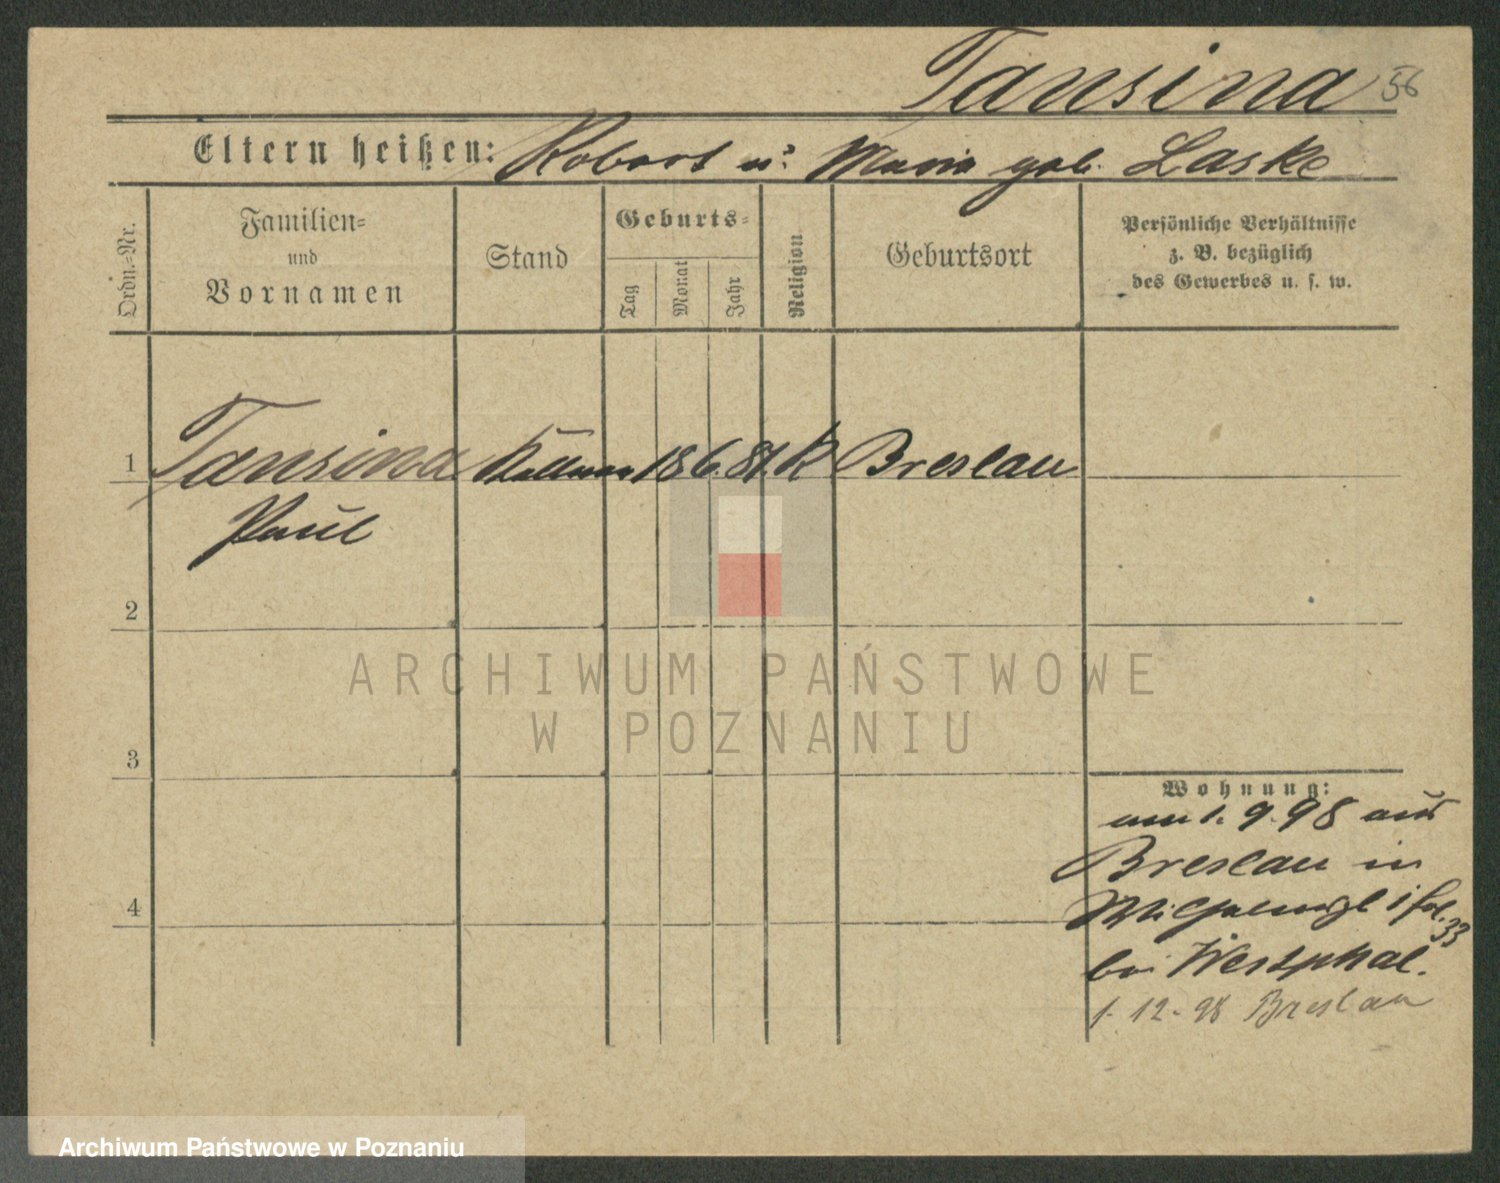 Tansina 56
Eltern heißen: Robert u. Maria geb. Laske
Ordn.-Nr.
Familien-
und
Vornamen
Stand
Geburts-
Tag
Monat
Jahr
Religion
Geburtsort
Persönliche Verhältnisse
z. B. bezüglich
des Gewerbes u. s. w.
1 Tansina Kellner 18 6. 81. K Breslau
Paul
2
3
4
Wohnung:
am 1. 9. 98 aus
Breslau in
33
bei Westphal.
1. 12. 98 Breslau
ARCHIWUM PAŃSTWOWE
W POZNANIU
Archiwum Państwowe w Poznaniu